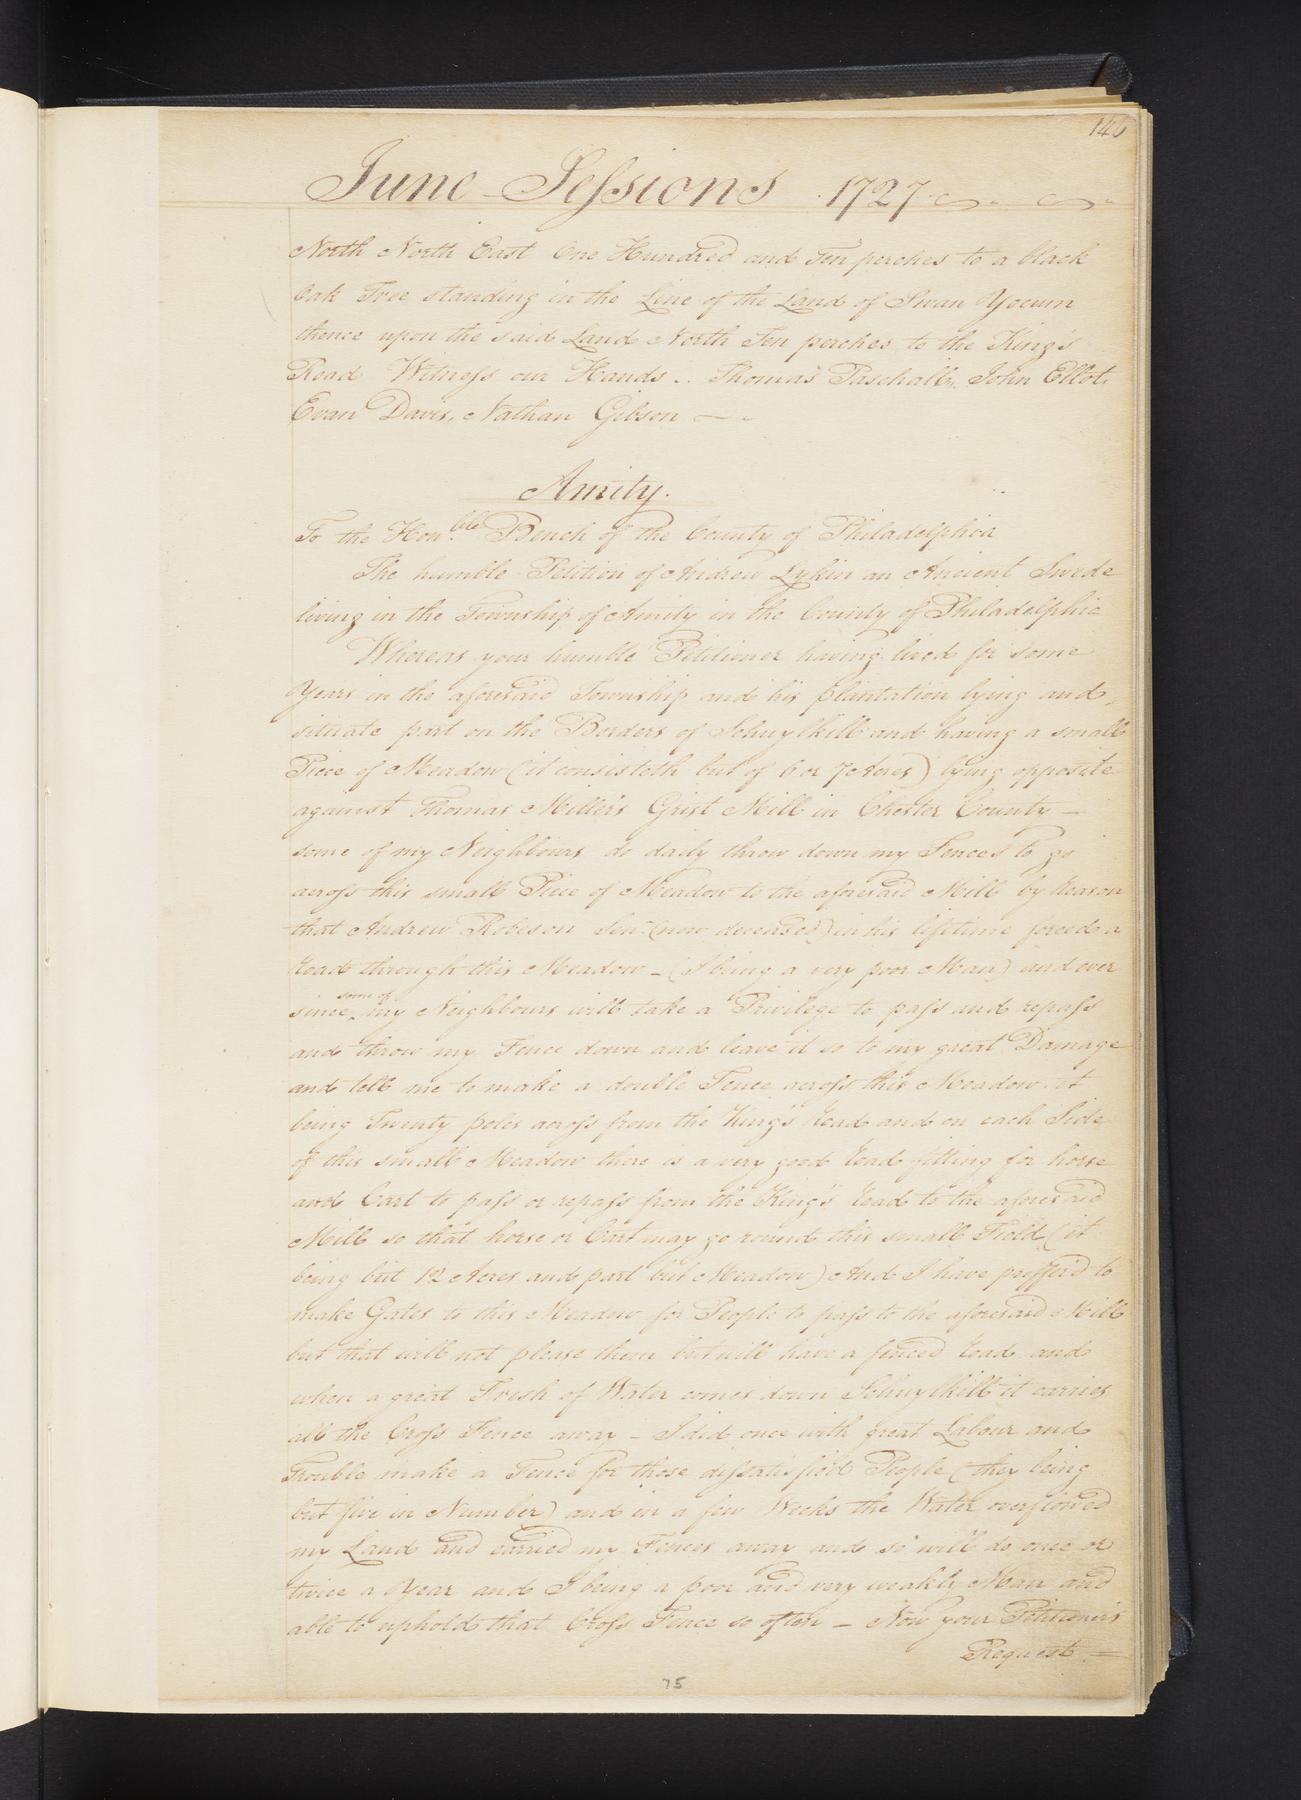 146
June Sessions 1727
North North East One Hundred and Ten perches to a black
Oak Tree standing in the Line of the Land of Swan Yocum
thence upon the said Land North Ten perches to the King's
Road Witness our Hands .. Thomas Paschall, John Ellot,
Evan Davis, Nathan Gibson
Amity.
To the Hon.ble Bench of the County of Philadelphia
The humble Petition of Andrew Lykin an Ancient Swede
living in the Township of Amity in the County of Philadelphia
Whereas your humble Petitioner having lived for some
Years in the aforesaid Township and his plantation lying and
situate part on the Borders of Schuylkill and having a small
Piece of Meadow (it consisteth but of 6 or 7 Acres) lying opposite
against Thomas Miller's Grist Mill in Chester County —
some of my Neighbours do daily throw down my Fences to go
across this small Piece of Meadow to the aforesaid Mill by Reason
that Andrew Robeson Senr. (now deceased) in his lifetime forced a
road through this Meadow — (I being a very poor Man) and ever
since some of my Neighbours will take a Privilege to pass and repass
and throw my Fence down and leave it so to my great Damage
and tell me to make a double Fence across this Meadow it
being Twenty poles across from the King's road and on each Side
of this small Meadow there is a very good road fitting for horse
and Cart to pass or repass from the King's road to the aforesaid
Mill so that horse or Cart may go round this small Field (it
being but 12 Acres and part but Meadow) And I have proffer'd to
make Gates to this Meadow for People to pass to the aforesaid Mill
but that will not please them but will have a fenced road and
when a great Fresh of Water comes down Schuylkill it carries
all the Cross Fence away — I did once with great Labour and
Trouble make a Fence for those dissatisfied People (they being
but five in Number) and in a few Weeks the Water overflowed
my Land and carried my Fences away and so will do once or
twice a Year and I being a poor and very weakly Man and
able to uphold that Cross Fence so often — Now your Petitioner's
Request —
75